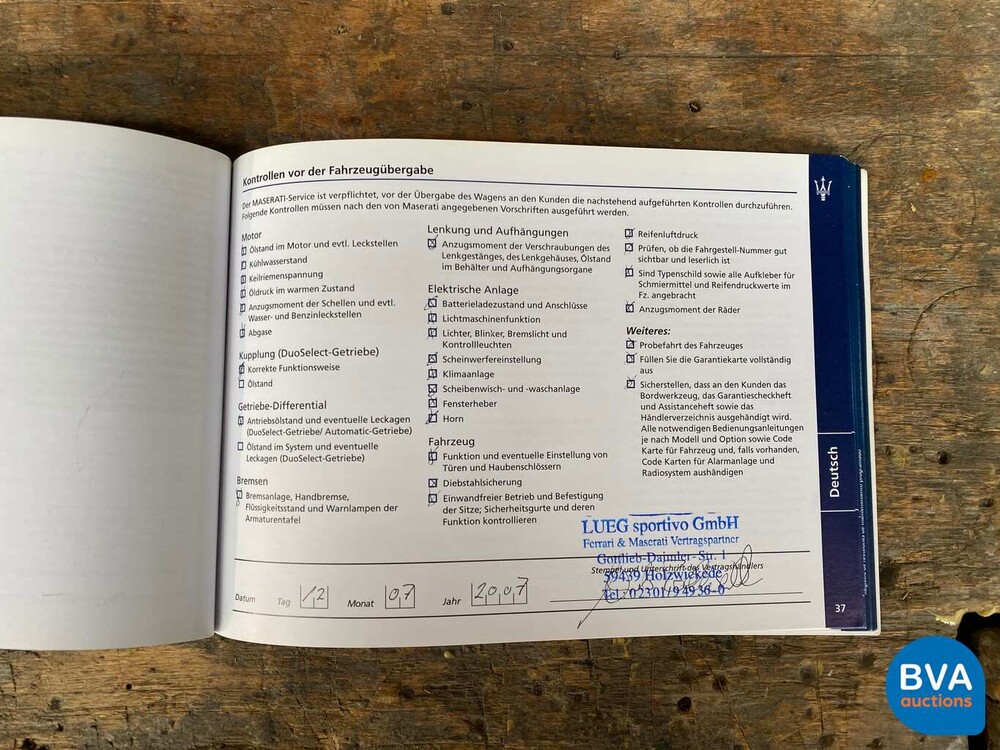 Kontrollen vor der Fahrzeugübergabe
Der MASERATI-Service ist verpflichtet, vor der Übergabe des Wagens an den Kunden die nachstehend aufgeführten Kontrollen durchzuführen.
Folgende Kontrollen müssen nach den von Maserati angegebenen Vorschriften ausgeführt werden.
Motor
Ölstand im Motor und evtl. Leckstellen
Kühlwasserstand
Keilriemenspannung
Öldruck im warmen Zustand
Anzugsmoment der Schellen und evtl.
Wasser- und Benzinleckstellen
Abgase
Kupplung (DuoSelect-Getriebe)
Korrekte Funktionsweise
Ölstand
Getriebe-Differential
Antriebsölstand und eventuelle Leckagen
(DuoSelect-Getriebe/ Automatic-Getriebe)
Ölstand im System und eventuelle
Leckagen (DuoSelect-Getriebe)
Bremsen
Bremsanlage, Handbremse,
Flüssigkeitsstand und Warnlampen der
Armaturentafel
Lenkung und Aufhängungen
Anzugsmoment der Verschraubungen des
Lenkgestänges, des Lenkgehäuses, Ölstand
im Behälter und Aufhängungsorgane
Elektrische Anlage
Batterieladezustand und Anschlüsse
Lichtmaschinenfunktion
Lichter, Blinker, Bremslicht und
Kontrollleuchten
Scheinwerfereinstellung
Klimaanlage
Scheibenwisch- und -waschanlage
Fensterheber
Horn
Fahrzeug
Funktion und eventuelle Einstellung von
Türen und Haubenschlössern
Diebstahlsicherung
Einwandfreier Betrieb und Befestigung
der Sitze; Sicherheitsgurte und deren
Funktion kontrollieren
Reifenluftdruck
Prüfen, ob die Fahrgestell-Nummer gut
sichtbar und leserlich ist
Sind Typenschild sowie alle Aufkleber für
Schmiermittel und Reifendruckwerte im
Fz. angebracht
Anzugsmoment der Räder
Weiteres:
Probefahrt des Fahrzeuges
Füllen Sie die Garantiekarte vollständig
aus
Sicherstellen, dass an den Kunden das
Bordwerkzeug, das Garantiescheckheft
und Assistanceheft sowie das
Händlerverzeichnis ausgehändigt wird.
Alle notwendigen Bedienungsanleitungen
je nach Modell und Option sowie Code
Karte für Fahrzeug und, falls vorhanden,
Code Karten für Alarmanlage und
Radiosystem aushändigen
LUEG sportivo GmbH
Ferrari & Maserati Vertragspartner
Gottlieb-Daimler-Str. 1
Stempel und Unterschrift des Vertragshändlers
59439 Holzwickede
Tel.: 02301/94936-0
Datum Tag 12 Monat 07 Jahr 2007
Deutsch
37
BVA
auctions